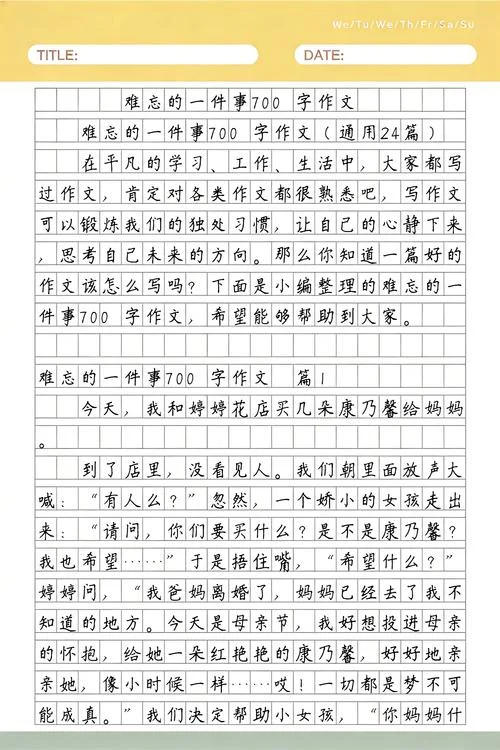 We/Tu/We/Th/Fr/Sa/Su
TITLE: DATE:
难忘的一件事700 字作文
难忘的一件事700 字作文(通用24篇)
在平凡的学习、工作、生活中,大家都写
过作文,肯定对各类作文都很熟悉吧,写作文
可以锻炼我们的独处习惯,让自己的心静下来
,思考自己未来的方向。那么你知道一篇好的
作文该怎么写吗?下面是小编整理的难忘的一
件事700 字作文,希望能够帮助到大家。
难忘的一件事700 字作文 篇1
今天,我和婷婷花店买几朵康乃馨给妈妈
。
到了店里,没看见人。我们朝里面放声大
喊:“有人么?”忽然,一个娇小的女孩走出
来:“请问,你们要买什么?是不是康乃馨?
我也希望……”于是捂住嘴,“希望什么?”
婷婷问,“我爸妈离婚了,妈妈已经去了我不
知道的地方。今天是母亲节,我好想投进母亲
的怀抱,给她一朵红艳艳的康乃馨,好好地亲
亲她,像小时候一样……哎!一切都是梦不可
能成真。”我们决定帮助小女孩,“你妈妈什